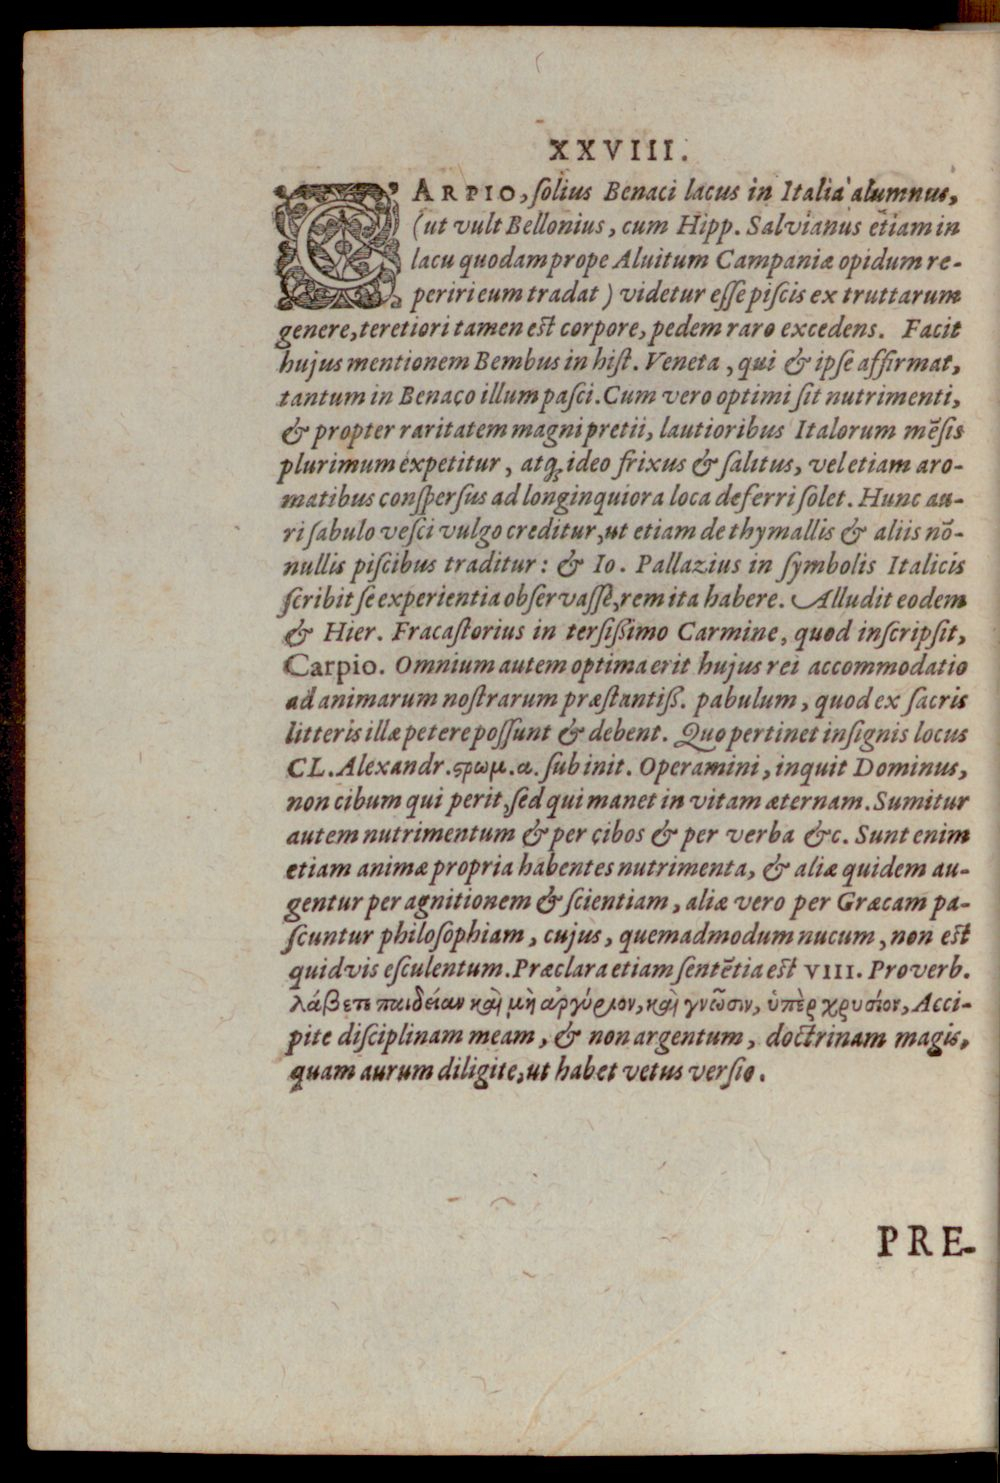 XXVIII.
CARPIO, ſolius Benaci lacus in Italia alumnus,
(ut vult Bellonius, cum Hipp. Salvianus etiam in
lacu quodam prope Aluitum Campaniæ opidum re-
periri eum tradat) videtur eſſe piſcis ex truttarum
genere, teretiori tamen eſt corpore, pedem raro excedens. Facit
hujus mentionem Bembus in hiſt. Veneta, qui & ipſe affirmat,
tantum in Benaco illum paſci. Cum vero optimi ſit nutrimenti,
& propter raritatem magni pretii, lautioribus Italorum mēſis
plurimum expetitur, atq; ideo frixus & ſalitus, vel etiam aro-
matibus conſperſus ad longinquiora loca deferri ſolet. Hunc au-
ri ſabulo veſci vulgo creditur, ut etiam de thymallis & aliis nō-
nullis piſcibus traditur: & Io. Pallazius in ſymbolis Italicis
ſcribit ſe experientia obſervaſſe, rem ita habere. Alludit eodem
& Hier. Fracaſtorius in terſiſſimo Carmine, quod inſcripſit,
Carpio. Omnium autem optima erit hujus rei accommodatio
ad animarum noſtrarum præſtantiſſ. pabulum, quod ex ſacris
litteris illæ petere poſſunt & debent. Quo pertinet inſignis locus
CL. Alexandr. ϛρωμ. α. ſub init. Operamini, inquit Dominus,
non cibum qui perit, ſed qui manet in vitam æternam. Sumitur
autem nutrimentum & per cibos & per verba &c. Sunt enim
etiam animæ propria habentes nutrimenta, & aliæ quidem au-
gentur per agnitionem & ſcientiam, aliæ vero per Græcam pa-
ſcuntur philoſophiam, cujus, quemadmodum nucum, non eſt
quidvis eſculentum. Præclara etiam ſentētia eſt VIII. Proverb.
λάβετε παιδείαν καὶ μὴ ἀργύριον, καὶ γνῶσιν, ὑπὲρ χρυσίον, Acci-
pite diſciplinam meam, & non argentum, doctrinam magis,
quam aurum diligite, ut habet vetus verſio.
PRE-